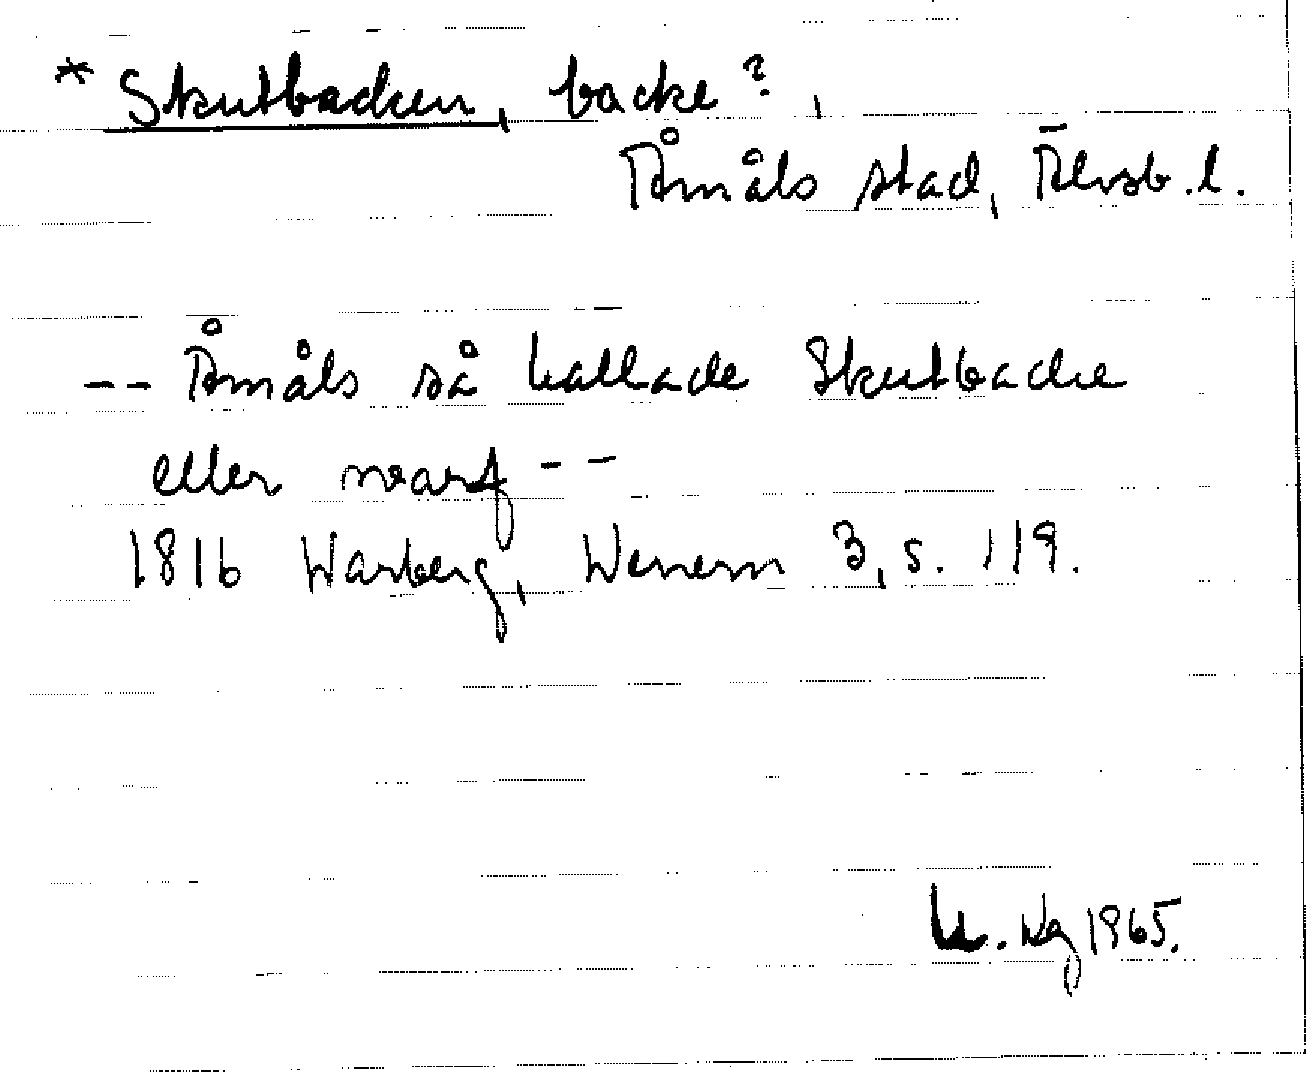 * Skutbacken, backe?,
Åmåls stad, Älvsb. l.
-- Åmåls så kallade Skutbacke
eller warf --
1816 Warberg, Wenern 3, s. 119.
1965.